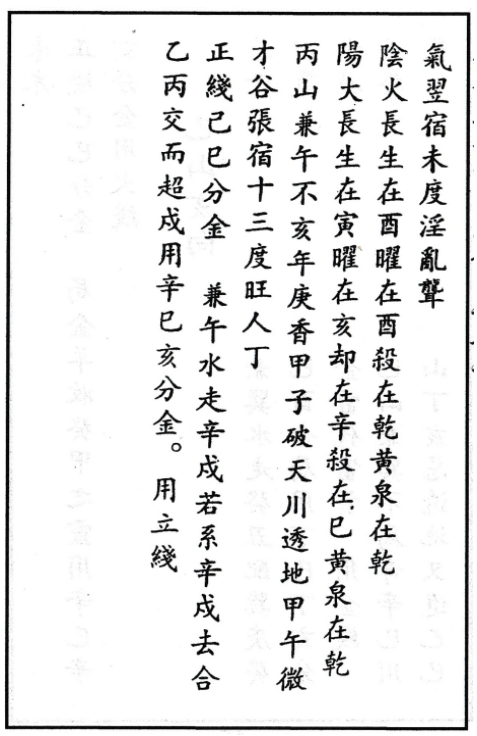 氣翌宿未度淫亂聾
陰火長生在酉曜在酉殺在乾黃泉在乾
陽大長生在寅曜在亥却在辛殺在巳黃泉在乾
丙山兼午不亥年庚香甲子破天川透地甲午微
才谷張宿十三度旺人丁
正綫己巳分金　兼午水走辛戍若系辛戍去合
乙丙交而超戍用辛巳亥分金。用立綫